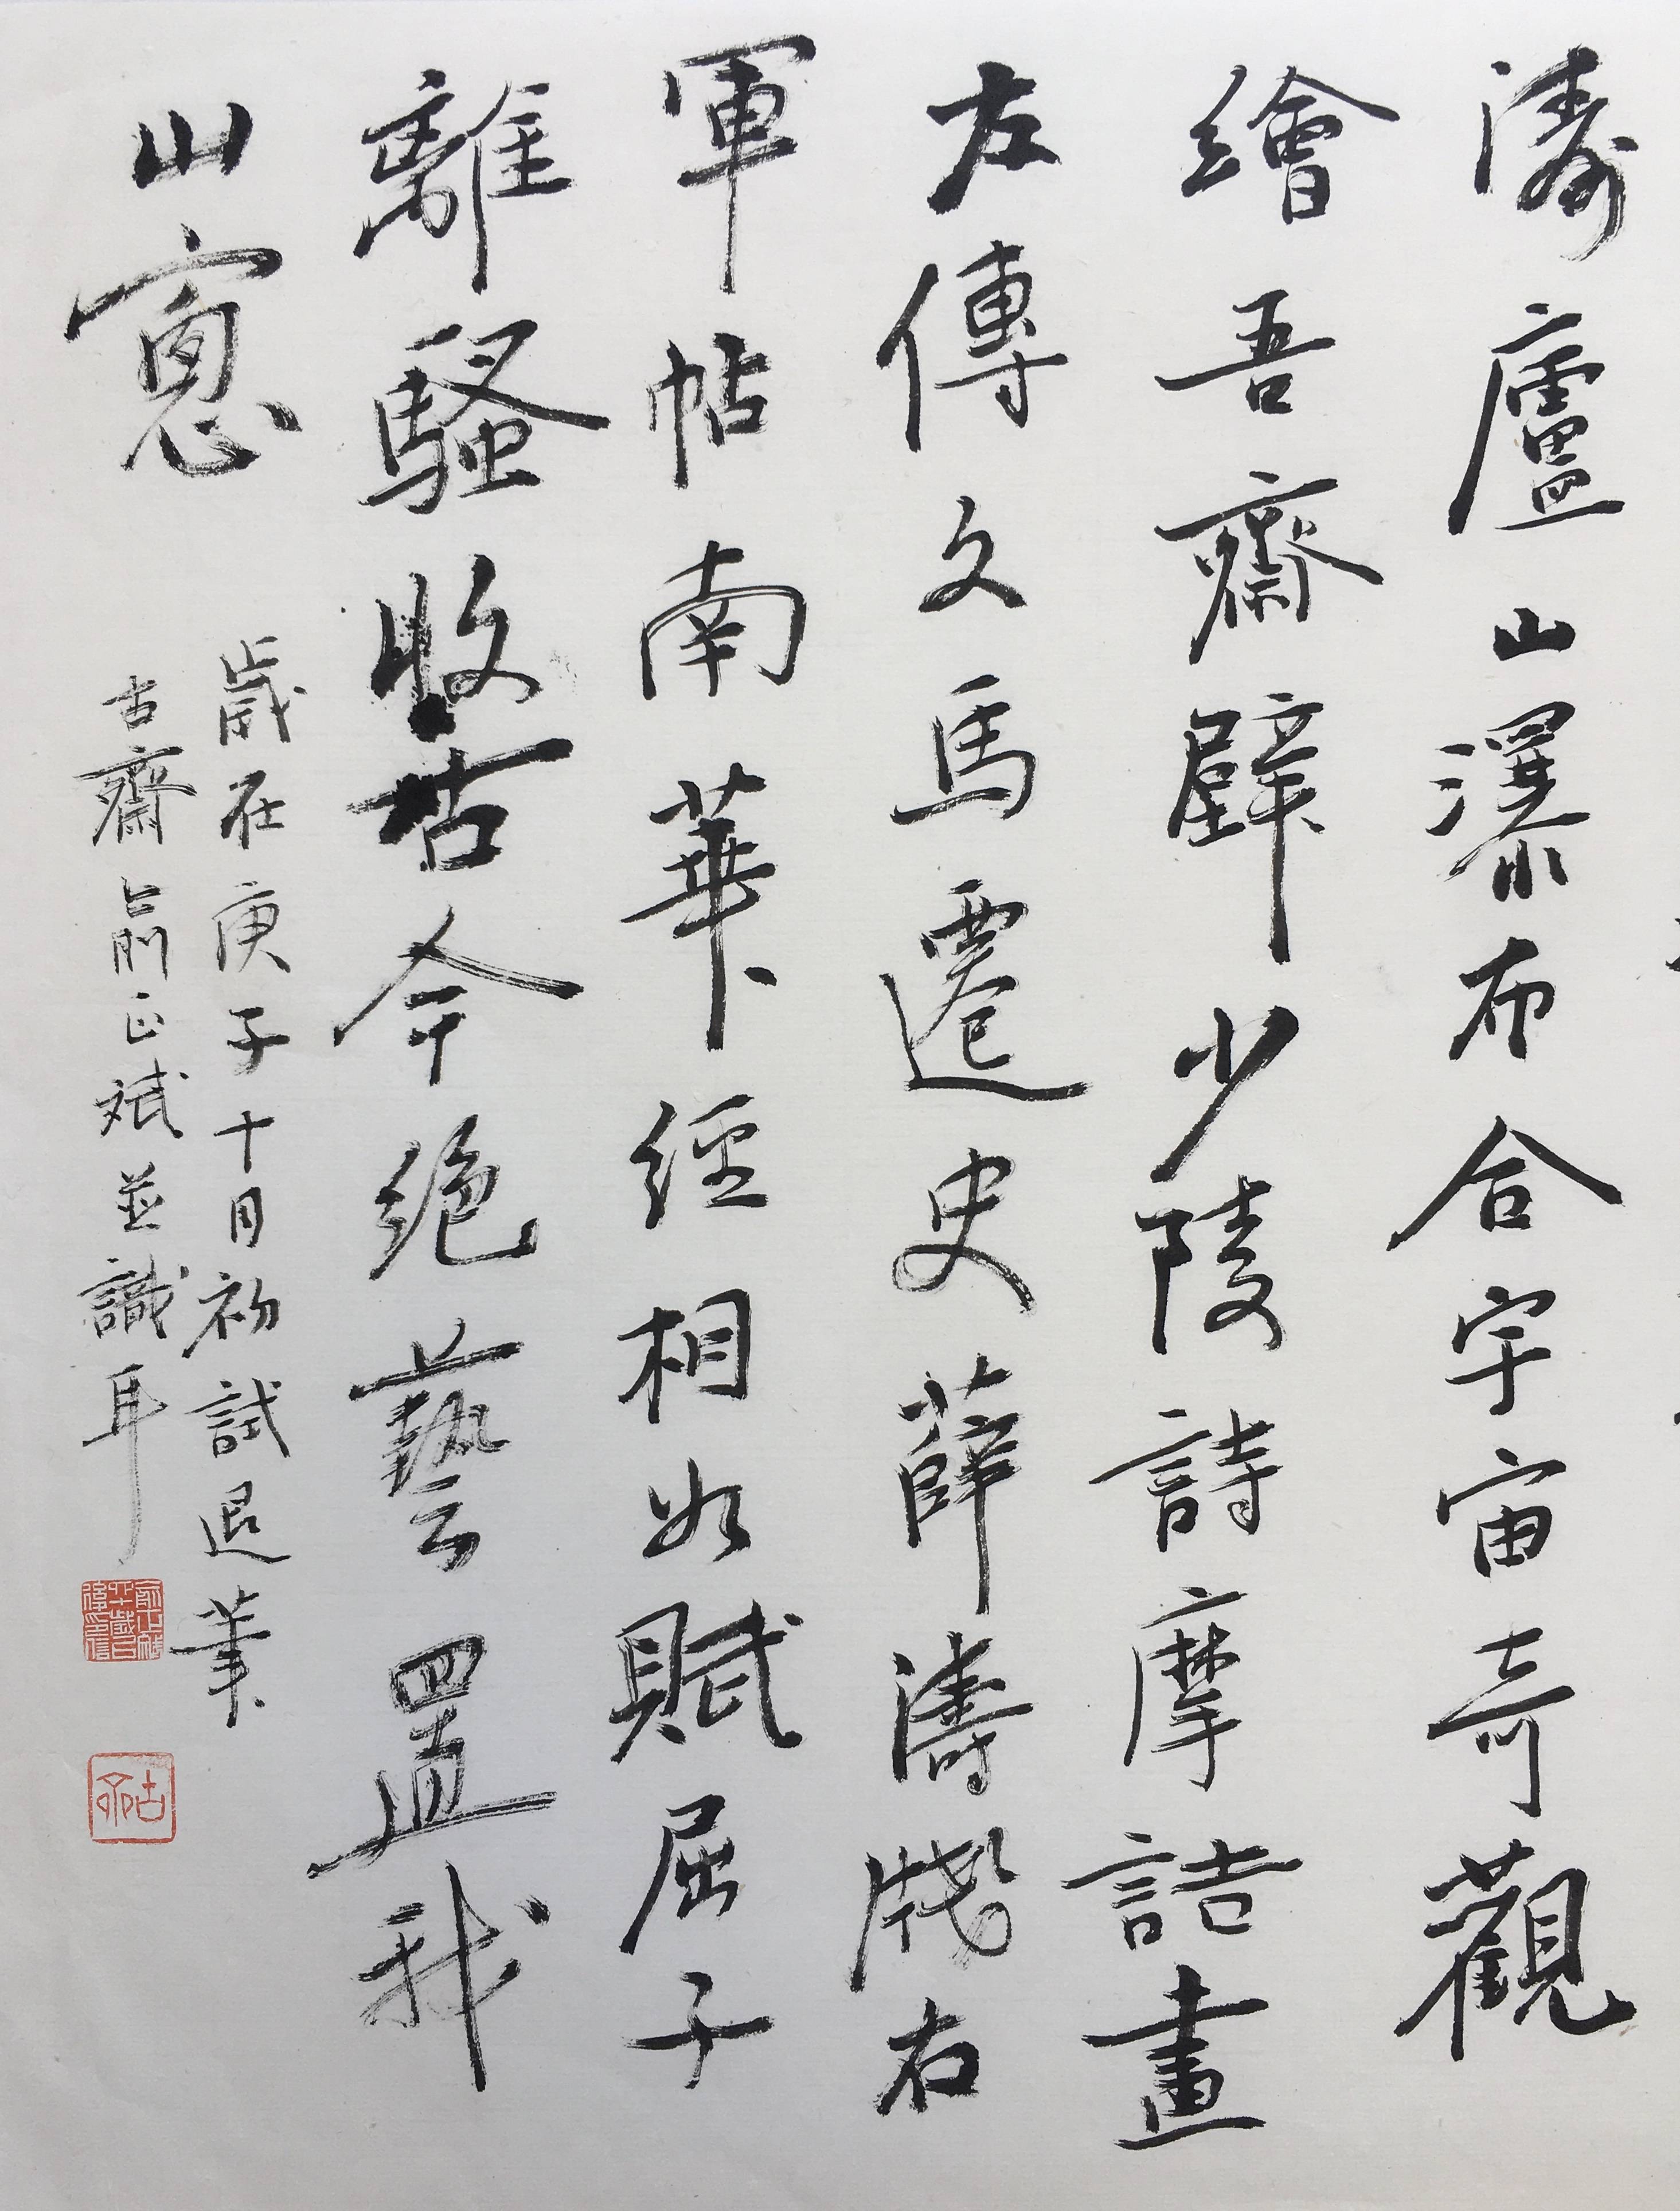 濤廬山瀑布合宇宙奇觀
繪吾齋壁少陵詩摩詰畫
左傳文馬遷史薛濤牋右
軍帖南華經相如賦屈子
離騷收古今絕藝置我
山窻
歲在庚子十月初試退筆
古齋俞正斌並識耳